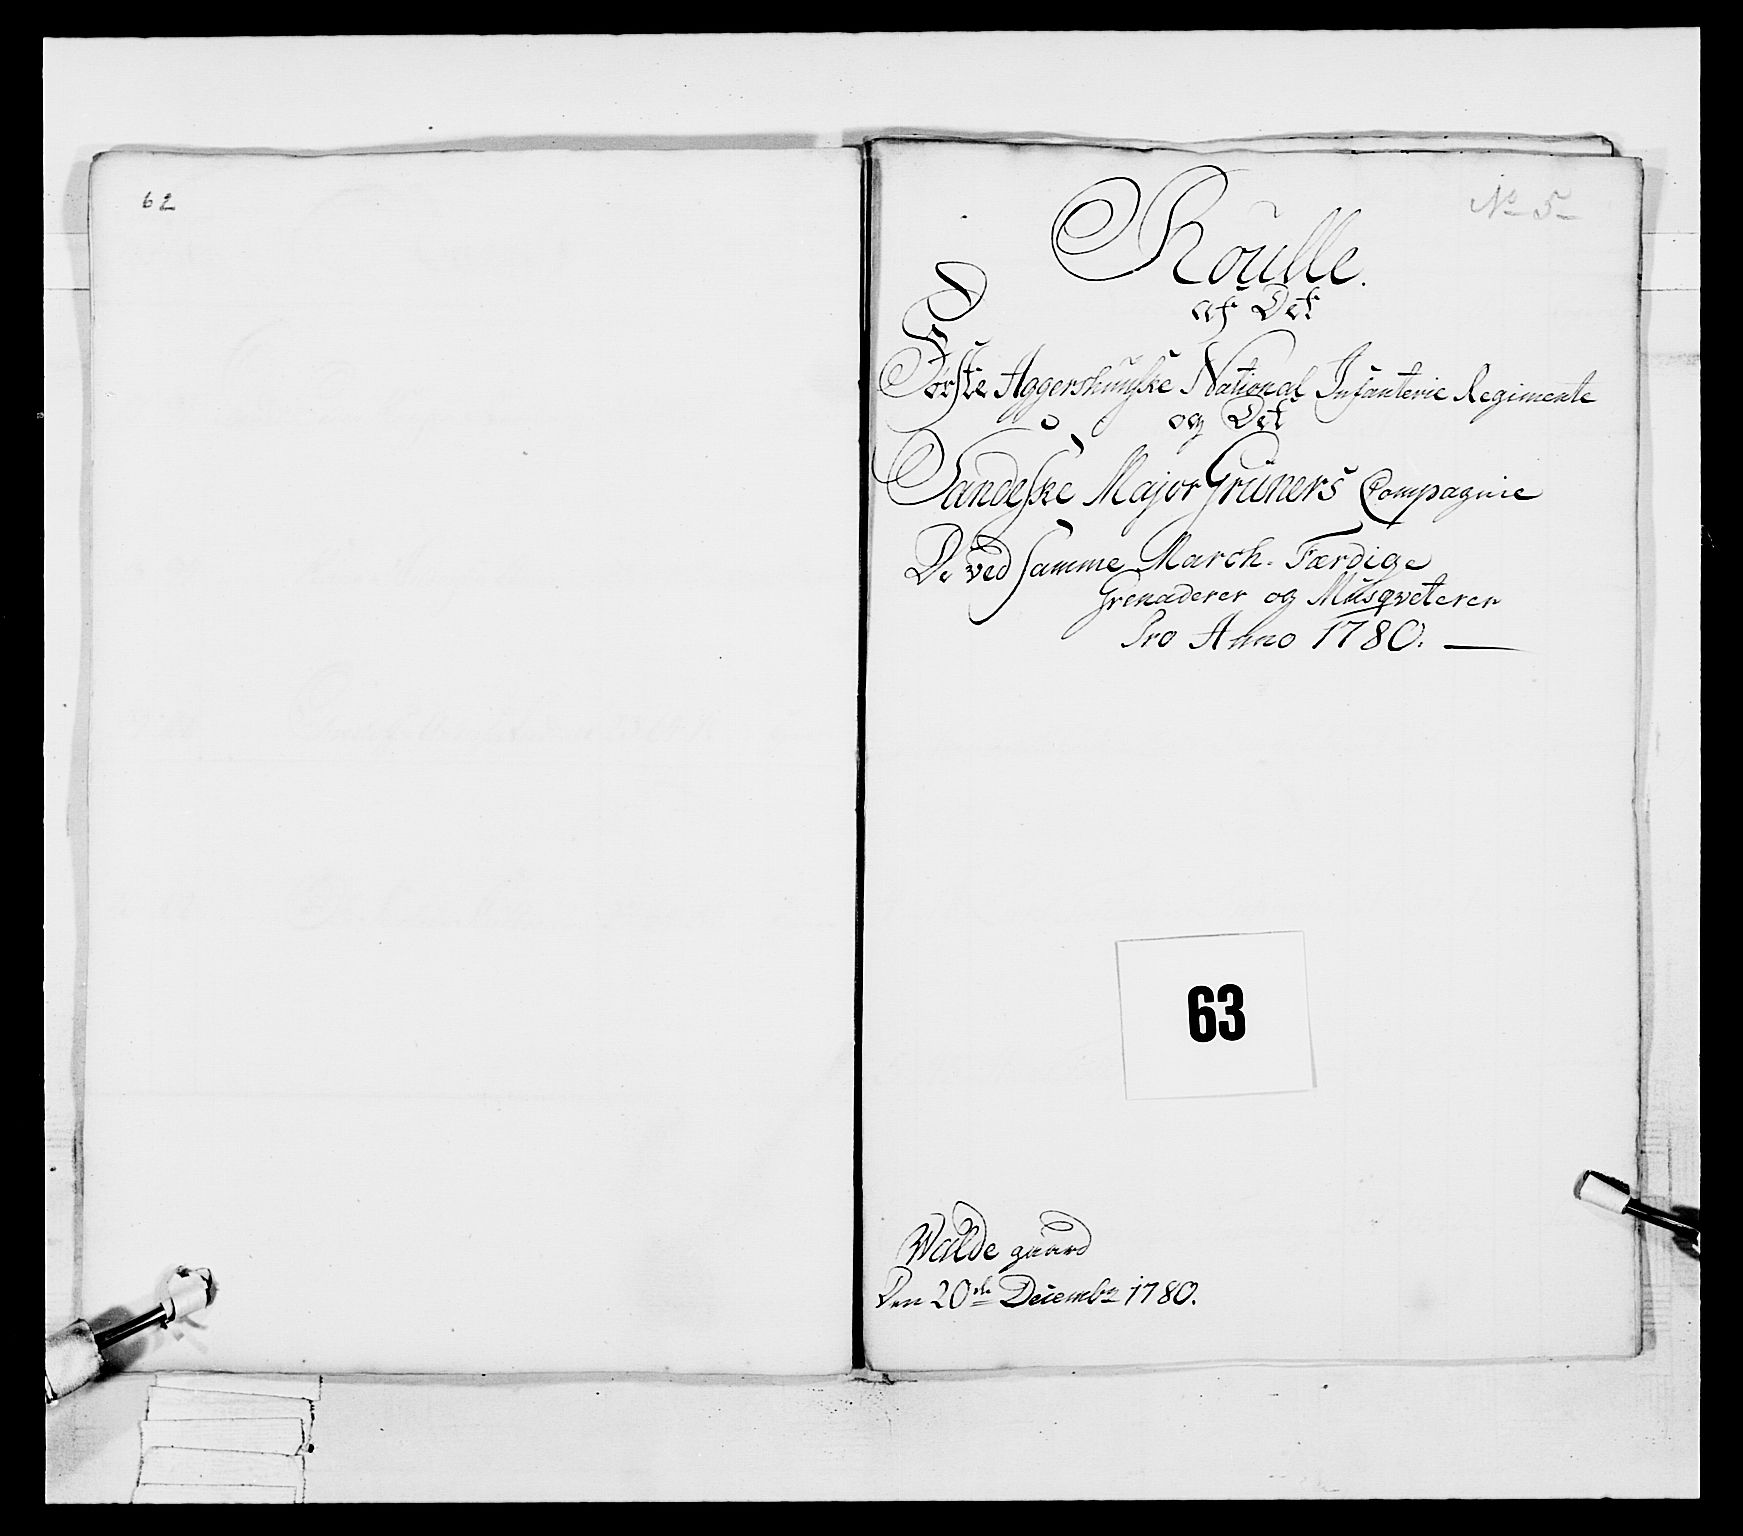 62
No 5
Roulle.
af Det
Første Aggershuuske National Infanterie Regimente
og Det
Sandeske Major Grüners Compagnie
De ved samme March-Færdige
Grenaderer og Musqveterer
Pro Anno 1780.
63
Walde gaard
Den 20de Decembr 1780.